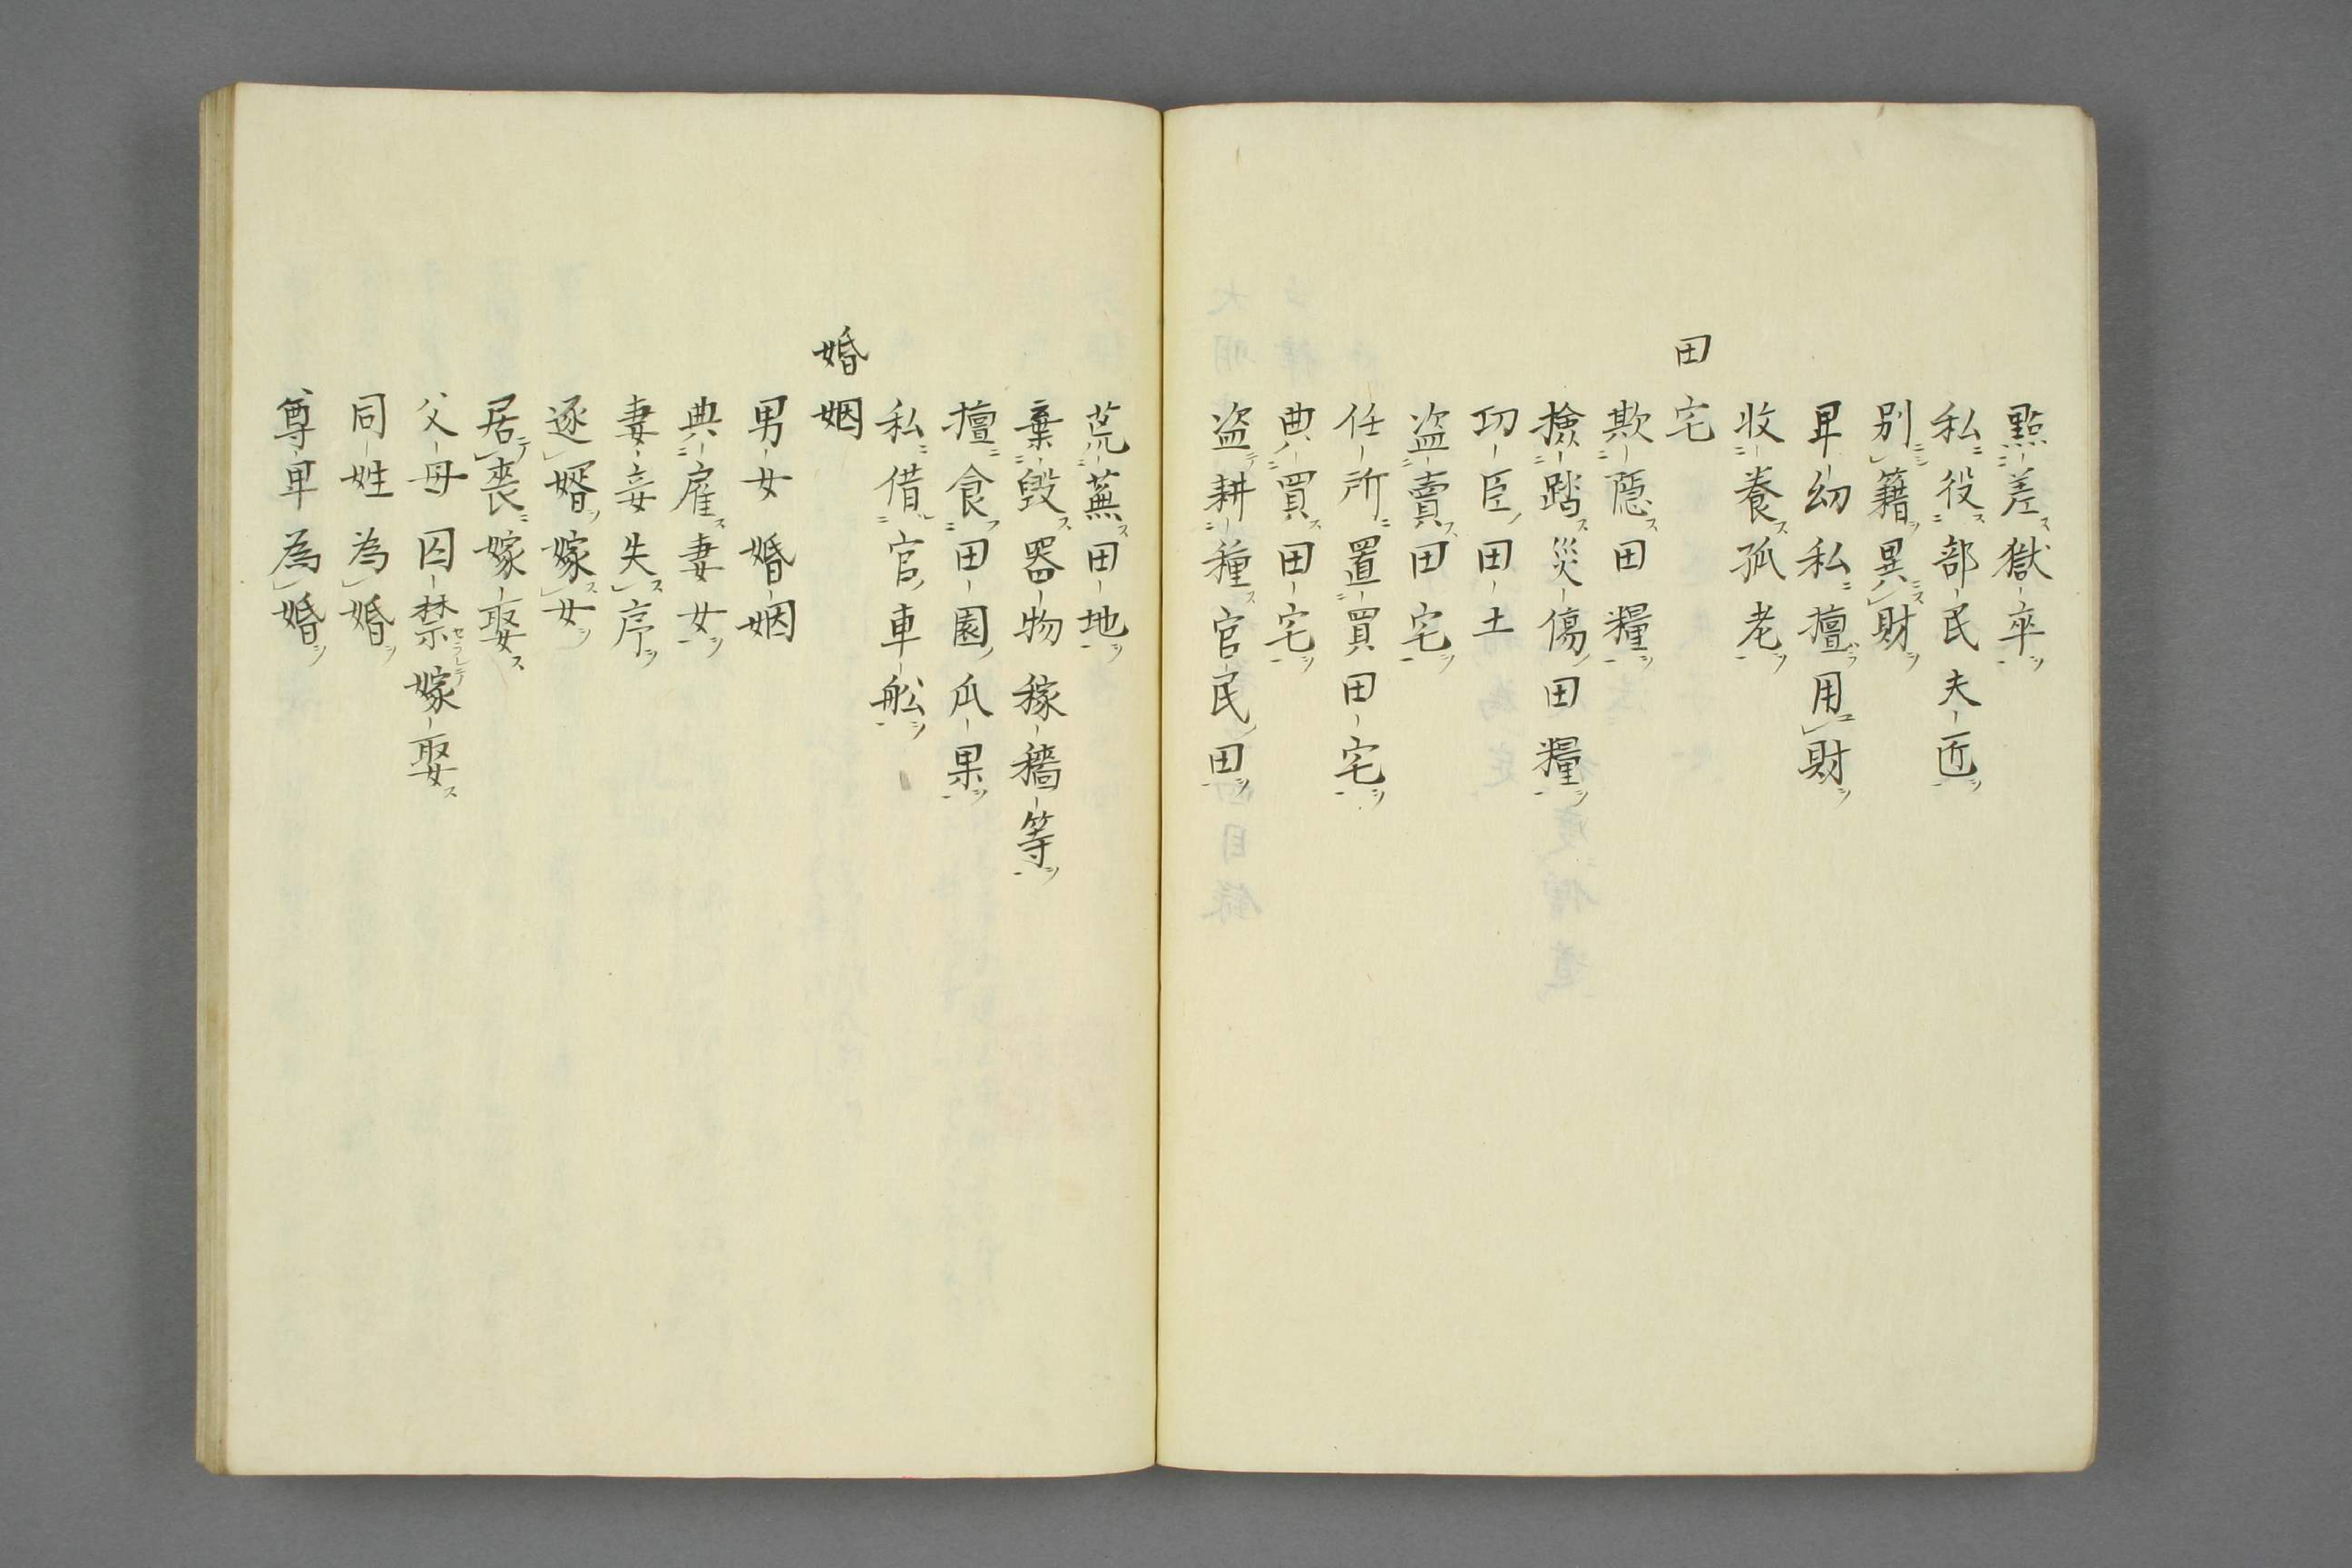 點差獄卒
私役部民夫匠
別籍異財
卑幼私擅用財
收養孤老
田宅
欺隱田糧
檢踏災傷田糧
功臣田土
盗賣田宅
任所置買田宅
典買田宅
盗耕種官民田
荒蕪田地
棄毀器物稼穡等
擅食田園瓜果
私借官車舩
婚姻
男女婚姻
典雇妻女
妻妾失序
逐婿嫁女
居喪嫁娶
父母囚禁嫁娶
同姓為婚
尊卑為婚